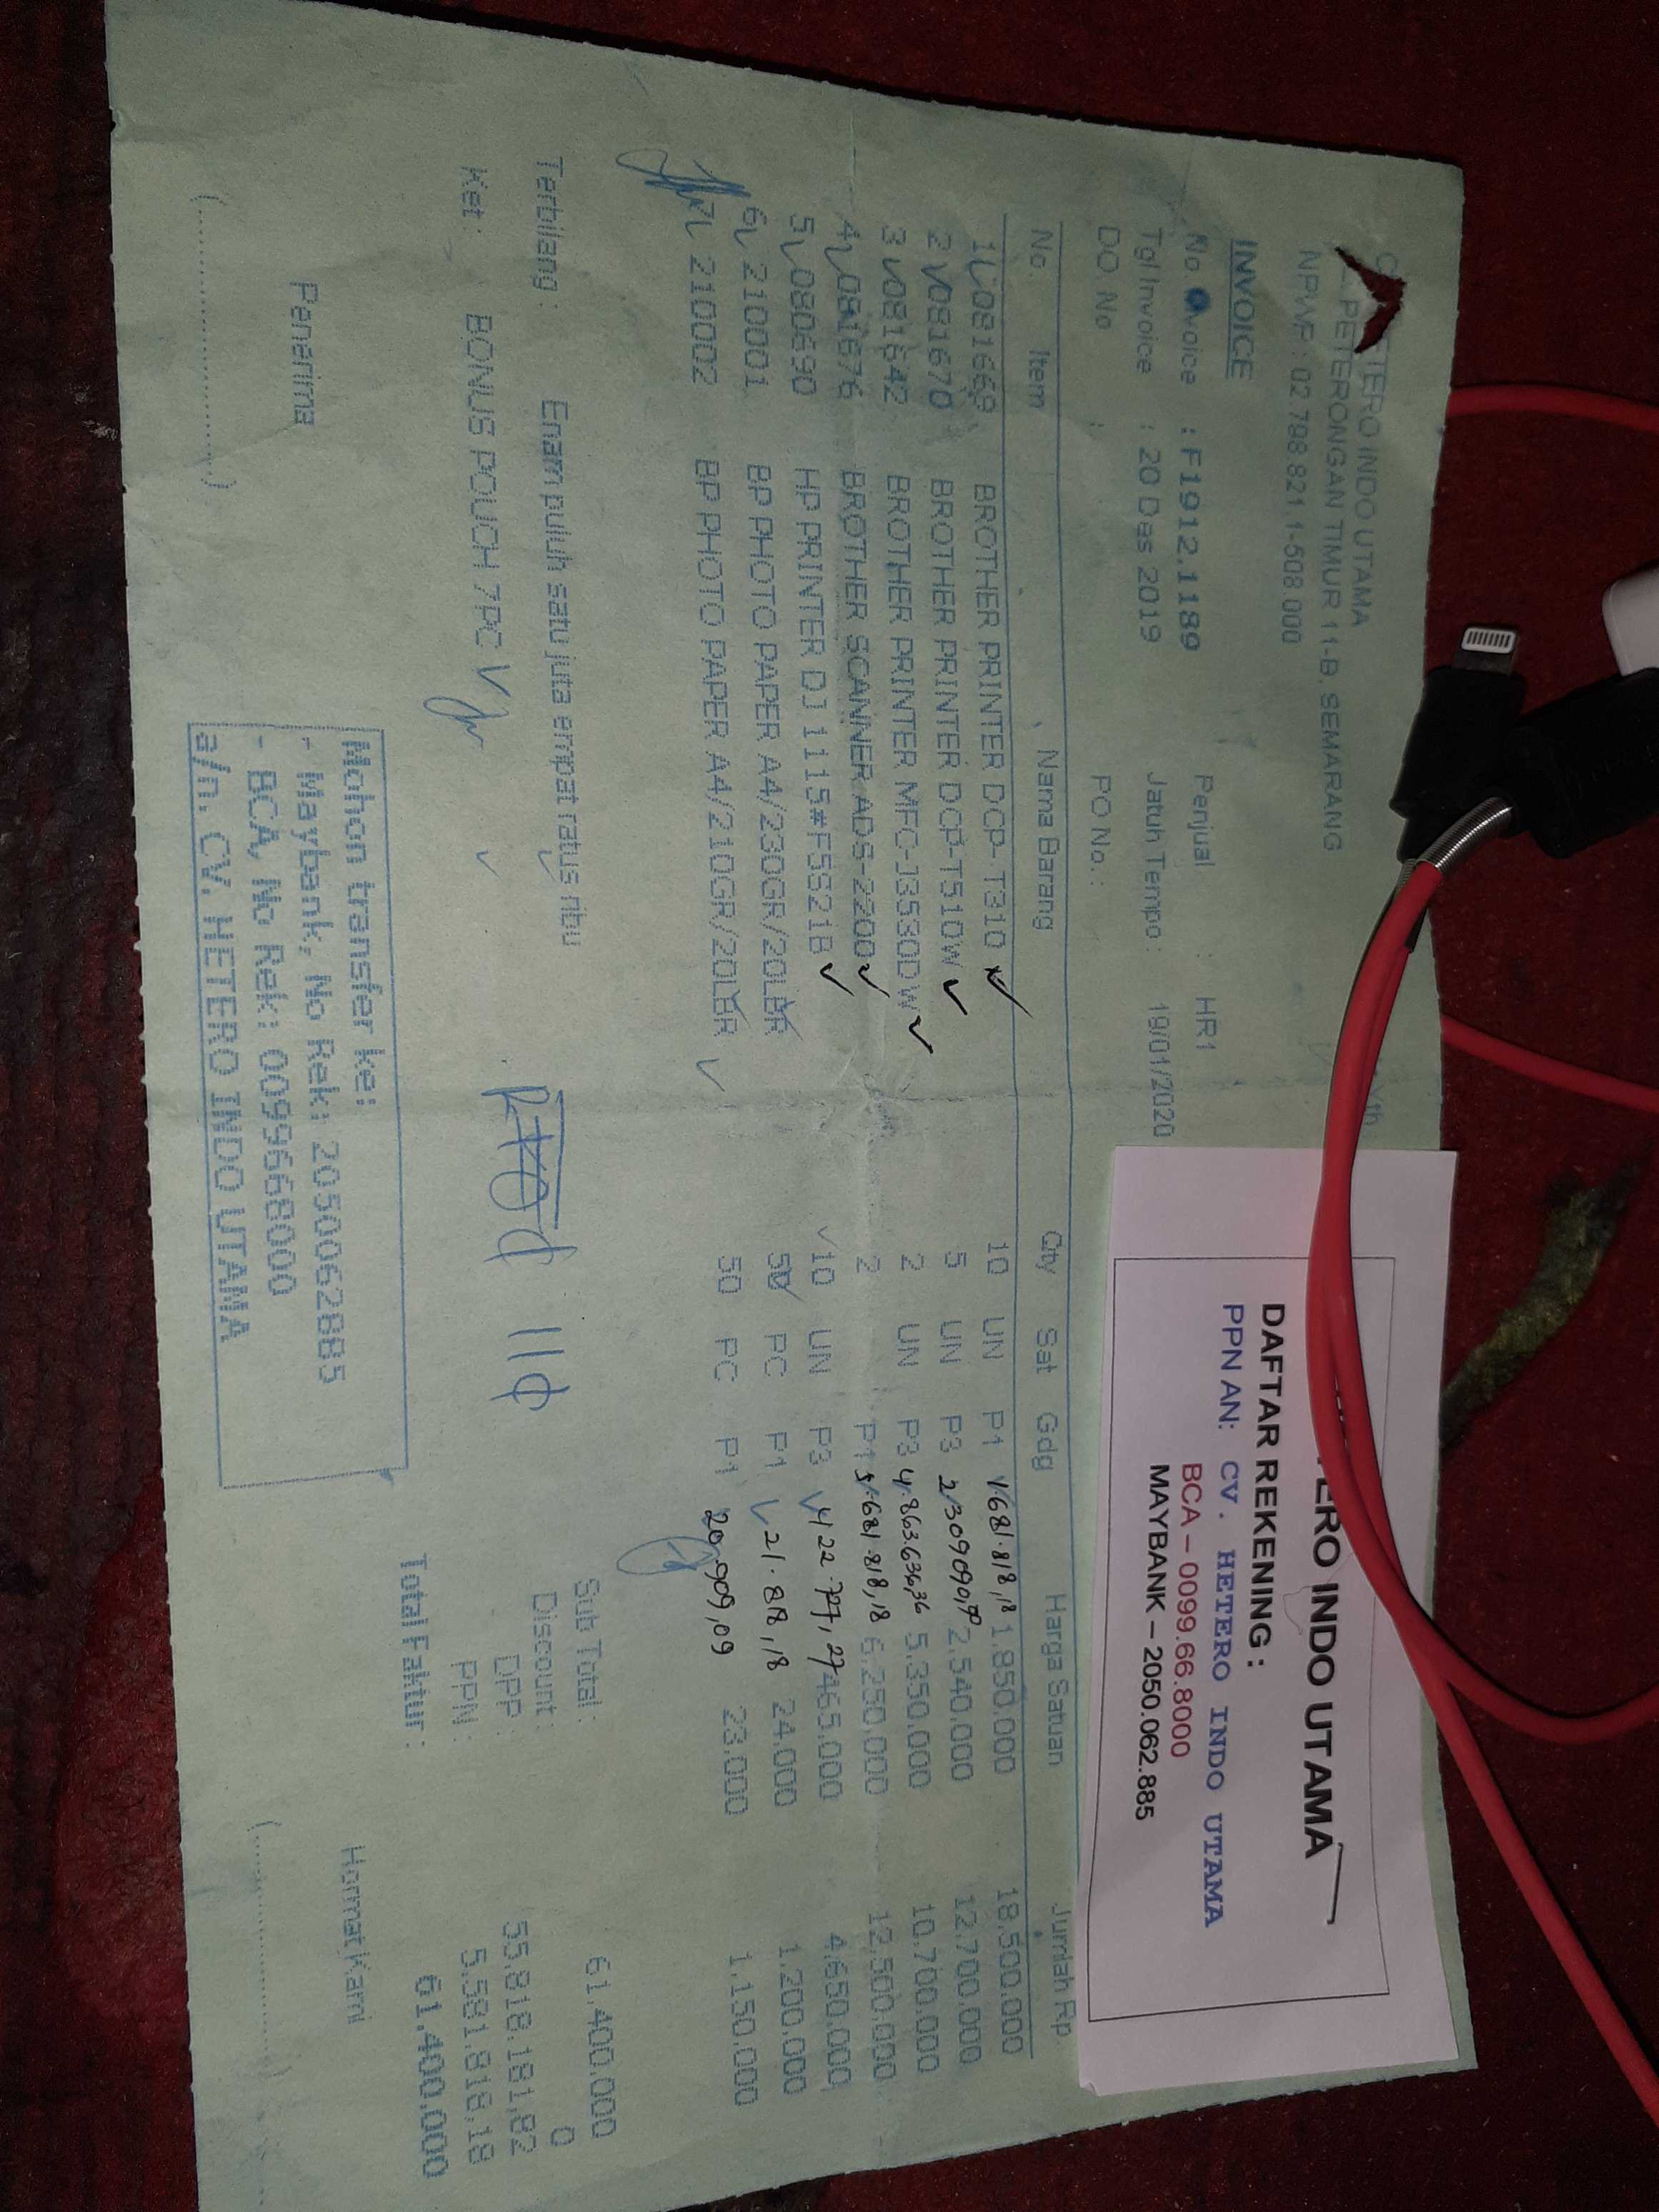 HETERO INDO UTAMA
PETERONGAN TIMUR 11-B, SEMARANG
NPWP : 02 788 821 1-508 000
Yth
INVOICE
No voice : F1912.1189 Penjual : HR1
Tgl Invoice : 20 Des 2019 Jatuh Tempo : 19/01/2020
DO No : PO No. :
ERO INDO UTAMA
DAFTAR REKENING :
PPN AN: CV. HETERO INDO UTAMA
BCA – 0099.66.8000
MAYBANK – 2050.062.885
No. Item Nama Barang Qty Sat Gdg Harga Satuan Jumlah Rp
1 081669 BROTHER PRINTER DCP-T310 10 UN P1 1.681.818,18 1.850.000 18.500.000
2 081670 BROTHER PRINTER DCP-T510W 5 UN P3 2309090,90 2.540.000 12.700.000
3 081642 BROTHER PRINTER MFC-J3530DW 2 UN P3 4.863.636,36 5.350.000 10.700.000
4 081676 BROTHER SCANNER ADS-2200 2 P1 5.681.818,18 6.250.000 12.500.000
5 080690 HP PRINTER DJ 1115#F5S21B 10 UN P3 422.727,27 465.000 4.650.000
6 210001 BP PHOTO PAPER A4/230GR/20LBR 50 PC P1 21.818,18 24.000 1.200.000
7 210002 BP PHOTO PAPER A4/210GR/20LBR 50 PC P1 20.909,09 23.000 1.150.000
Terbilang : Enam puluh satu juta empat ratus ribu
Sub Total : 61.400.000
Discount : 0
Ket : BONUS POUCH 7PC
DPP : 55.818.181,82
PPN : 5.581.818,18
Total Faktur : 61.400.000
Penerima
Hormat Kami
Mohon transfer ke:
- Maybank, No Rek : 2050062885
- BCA, No Rek : 0099668000
a/n. CV. HETERO INDO UTAMA
(....................) (....................)